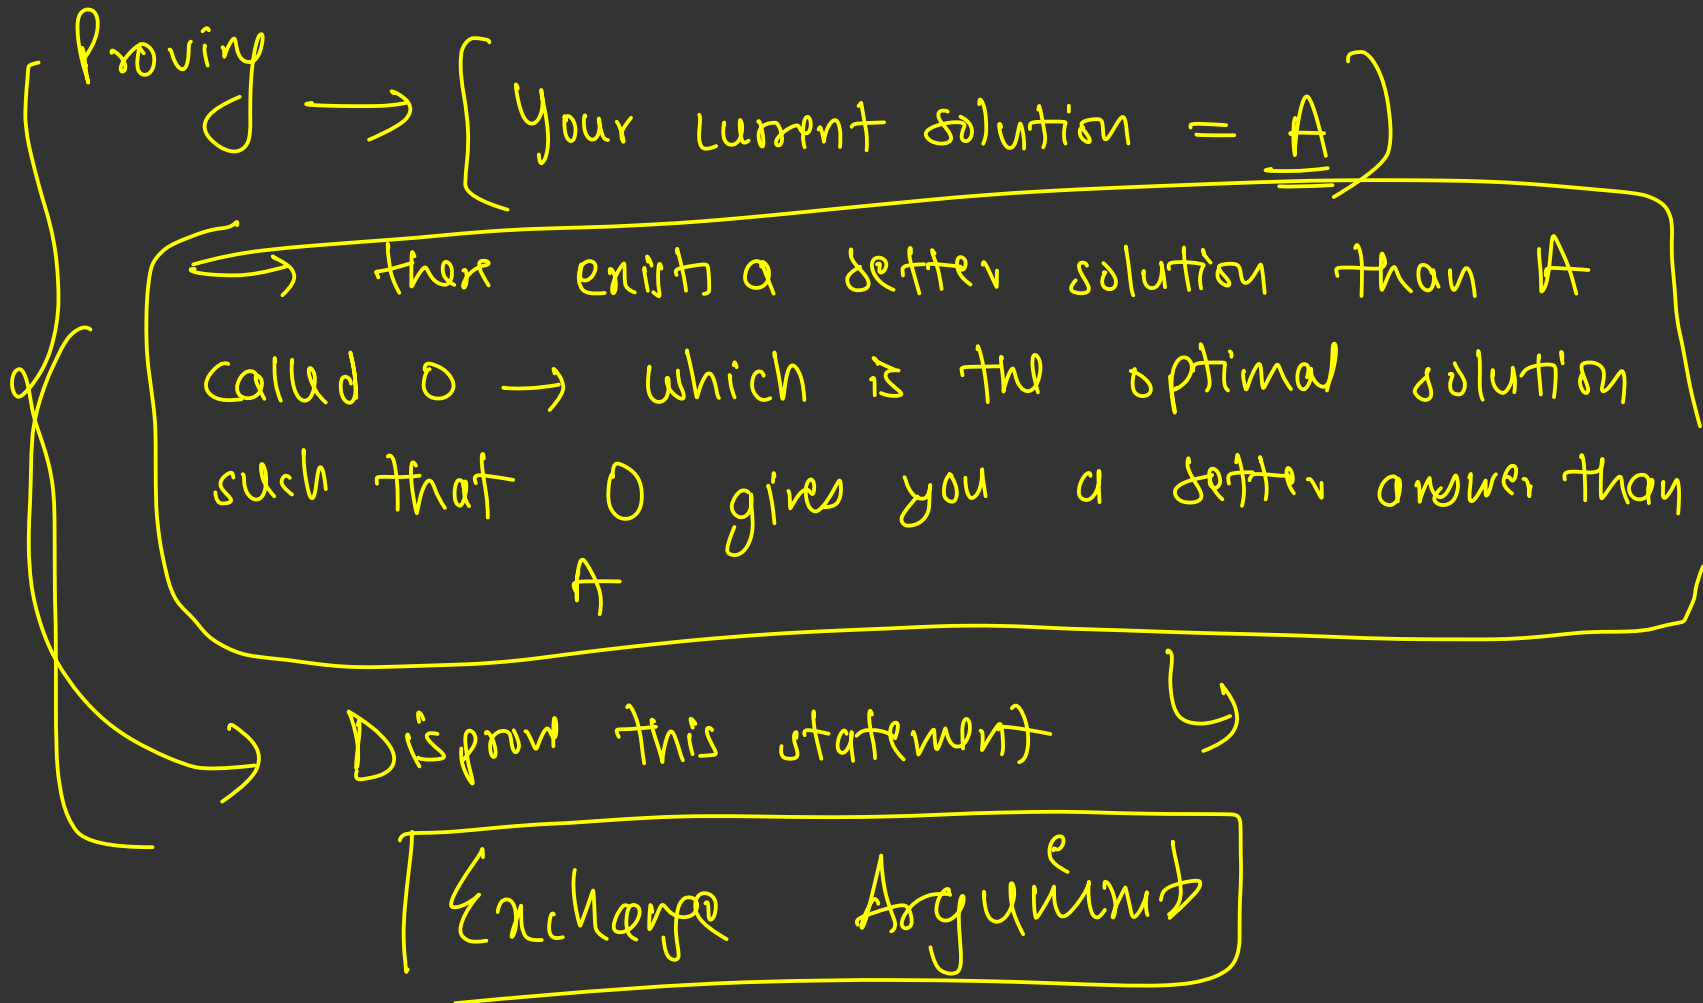 Proving → [Your current solution = A]
→ there exists a better solution than A
called O → which is the optimal solution
such that O gives you a better answer than
A
Disprove this statement
Exchange Argument